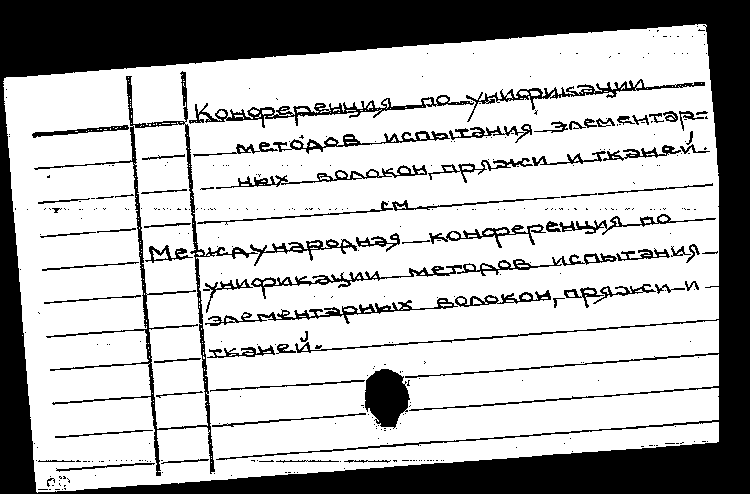 Конференция по унификации
методов испытания элементар=
ных волокон, пряжи и тканей.
см.
Международная конференция по
унификации методов испытания
элементарных волокон, пряжи и
тканей.